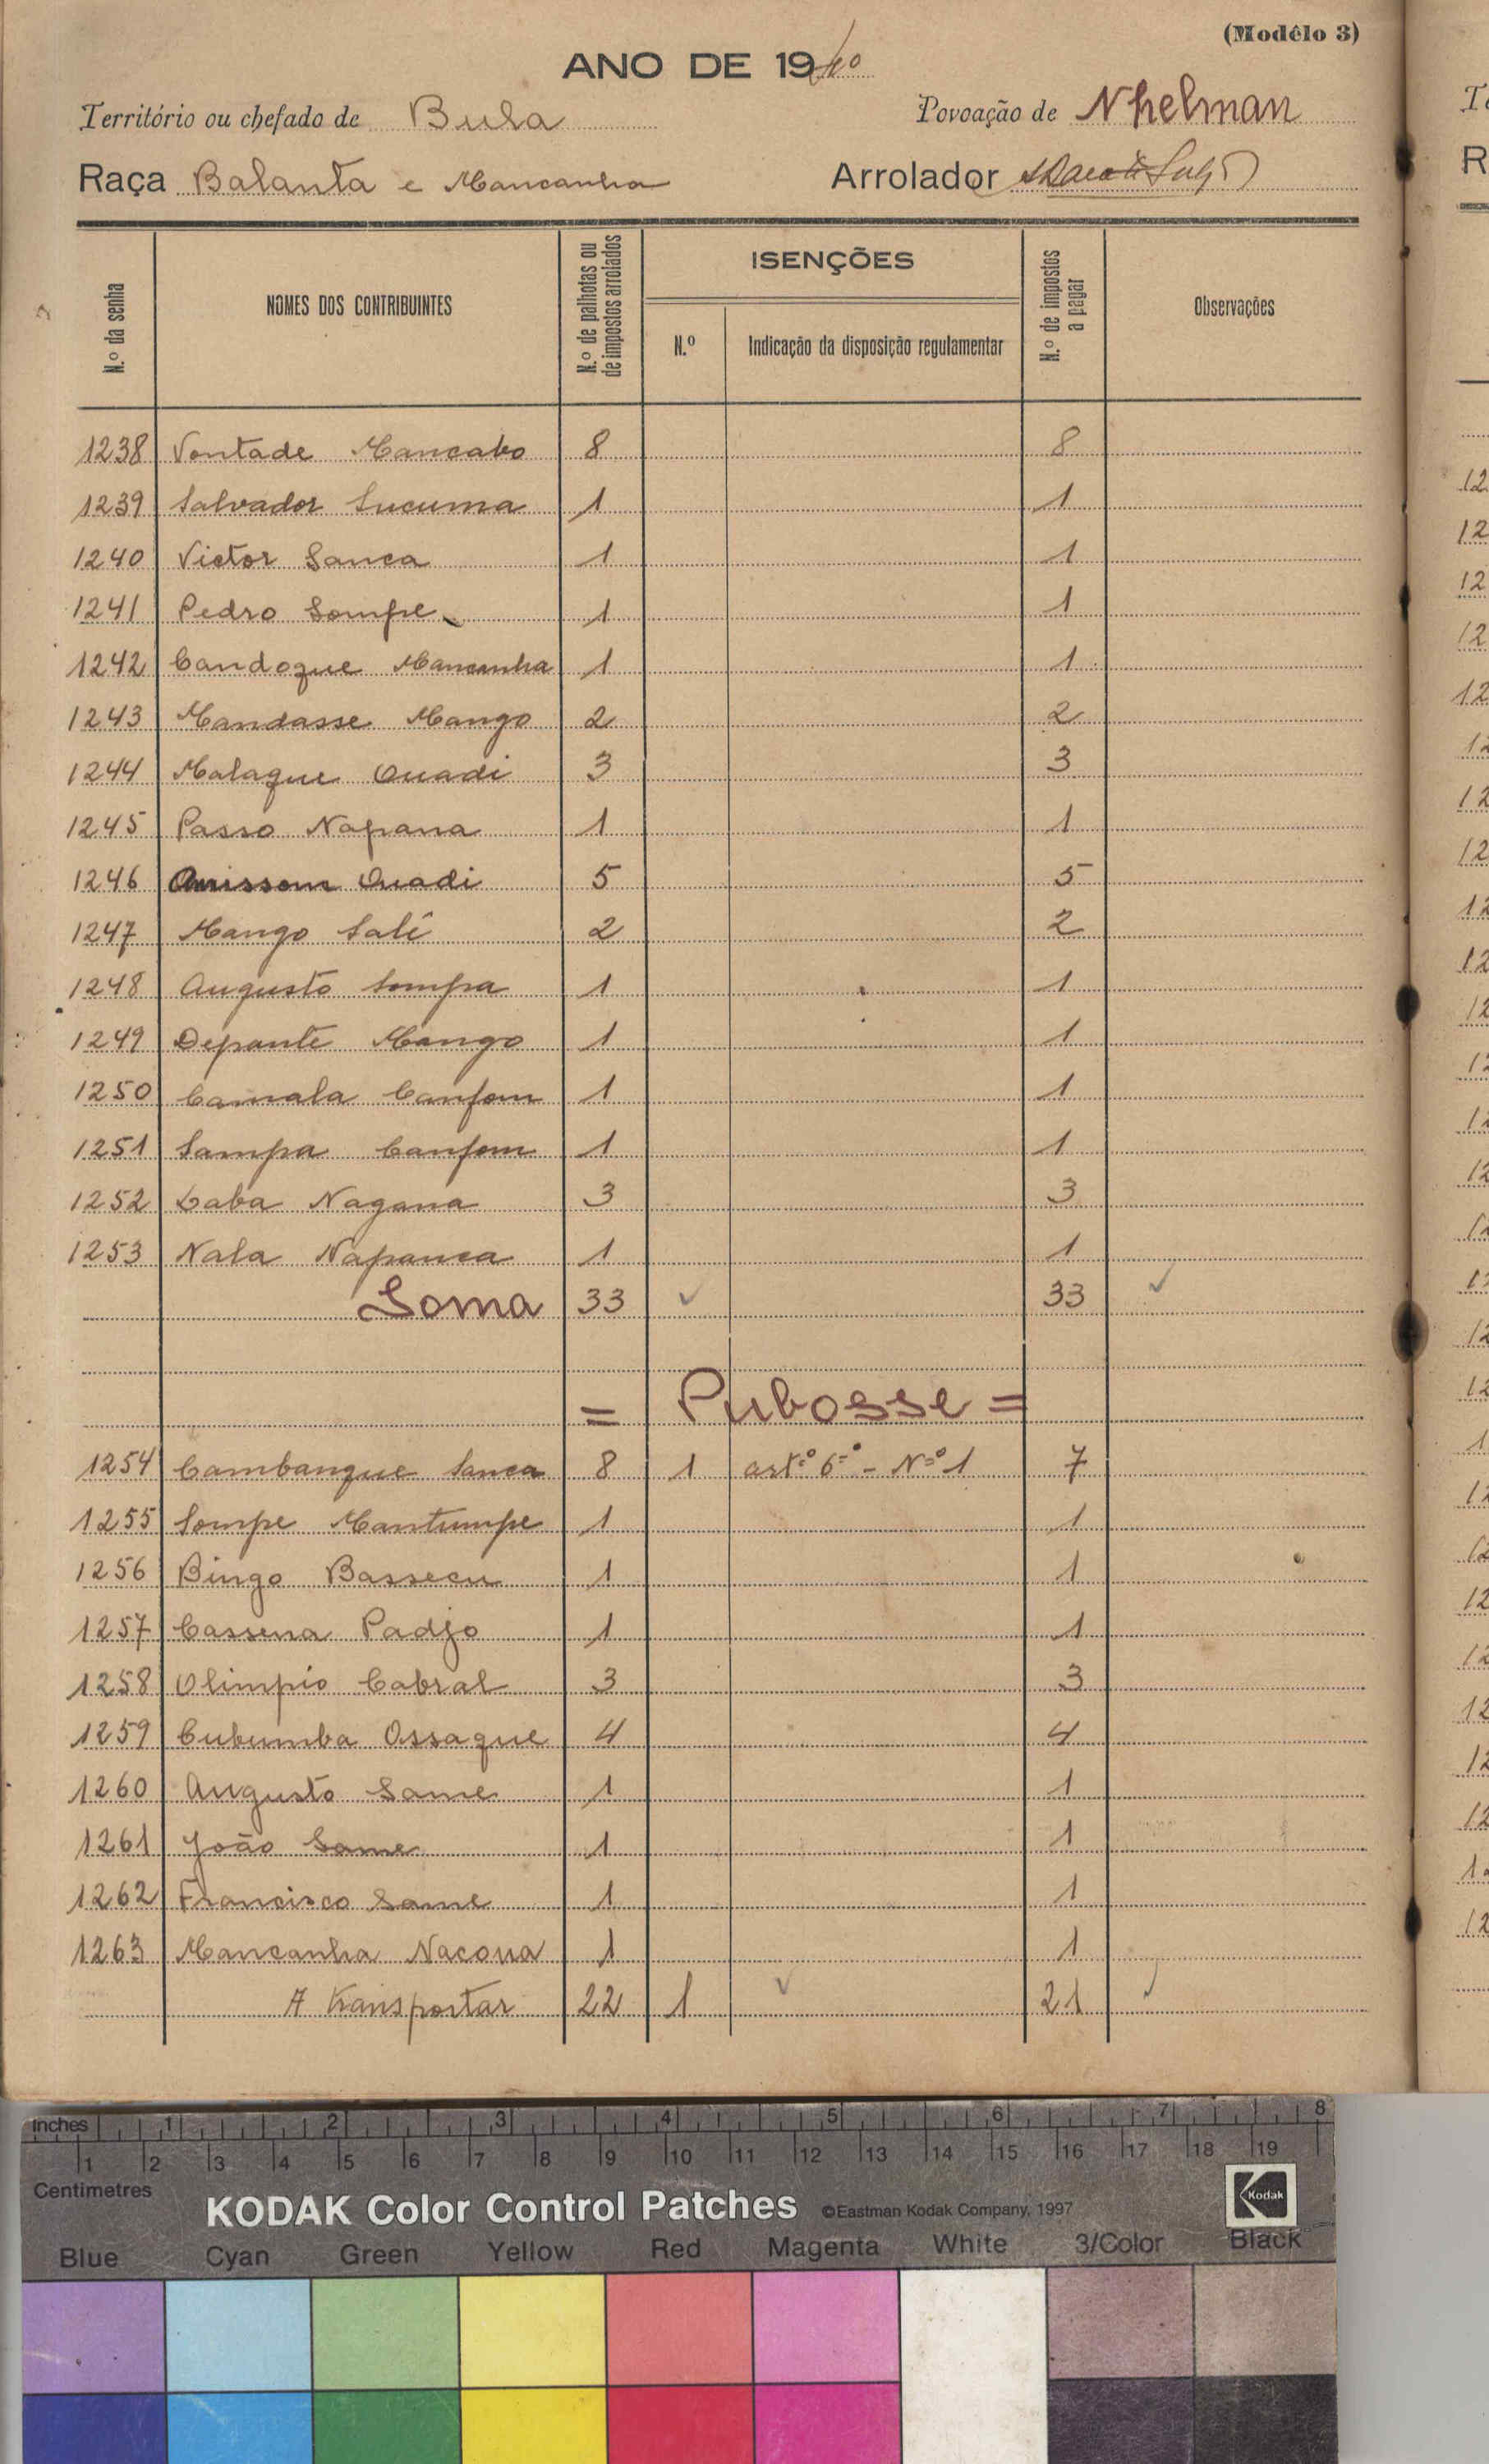 (Modêlo 3)
ANO DE 1940
Território ou chefado de Bula Povoação de Nhelman
Raça Balanta e Mancanha Arrolador
N.º da senha NOMES DOS CONTRIBUINTES N.º de palhotas ou de impostos arrolados ISENÇÕES N.º Indicação da disposição regulamentar N.º de impostos a pagar Observações
1238 Vontade Mancabo 8 8
1239 Salvador Sucuma 1 1
1240 Victor Sanca 1 1
1241 Pedro Sompe 1 1
1242 Candoque Mancanha 1 1
1243 Mandasse Mango 2 2
1244 Malaque Ouadi 3 3
1245 Passo Napana 1 1
1246 Ouadi 5 5
1247 Mango Salé 2 2
1248 Augusto Sompa 1 1
1249 Depante Mango 1 1
1250 Camala Canfom 1 1
1251 Sampa Canfom 1 1
1252 Laba Nagana 3 3
1253 Nala Napanca 1 1
Soma 33 33
= Pubosse =
1254 Cambanque Sanca 8 1 artº 6º - Nº 1 7
1255 Sompe Mantumpe 1 1
1256 Bingo Bassecu 1 1
1257 Cassena Padjo 1 1
1258 Olimpio Cabral 3 3
1259 Cubumba Ossaque 4 4
1260 Augusto Same 1 1
1261 João Same 1 1
1262 Francisco Same 1 1
1263 Mancanha Nacoua 1 1
A transportar 22 1 21
Inches 1 2 3 4 5 6 7 8
1 2 3 4 5 6 7 8 9 10 11 12 13 14 15 16 17 18 19
Centimetres
KODAK Color Control Patches ©Eastman Kodak Company, 1997 Kodak
Blue Cyan Green Yellow Red Magenta White 3/Color Black